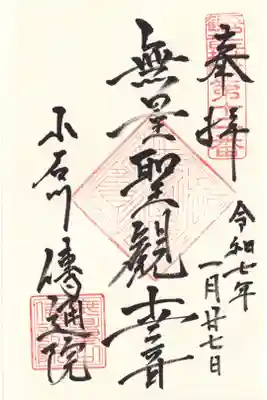 奉拝
令和七年
一月廿七日
無量聖觀世音
小石川傳通院